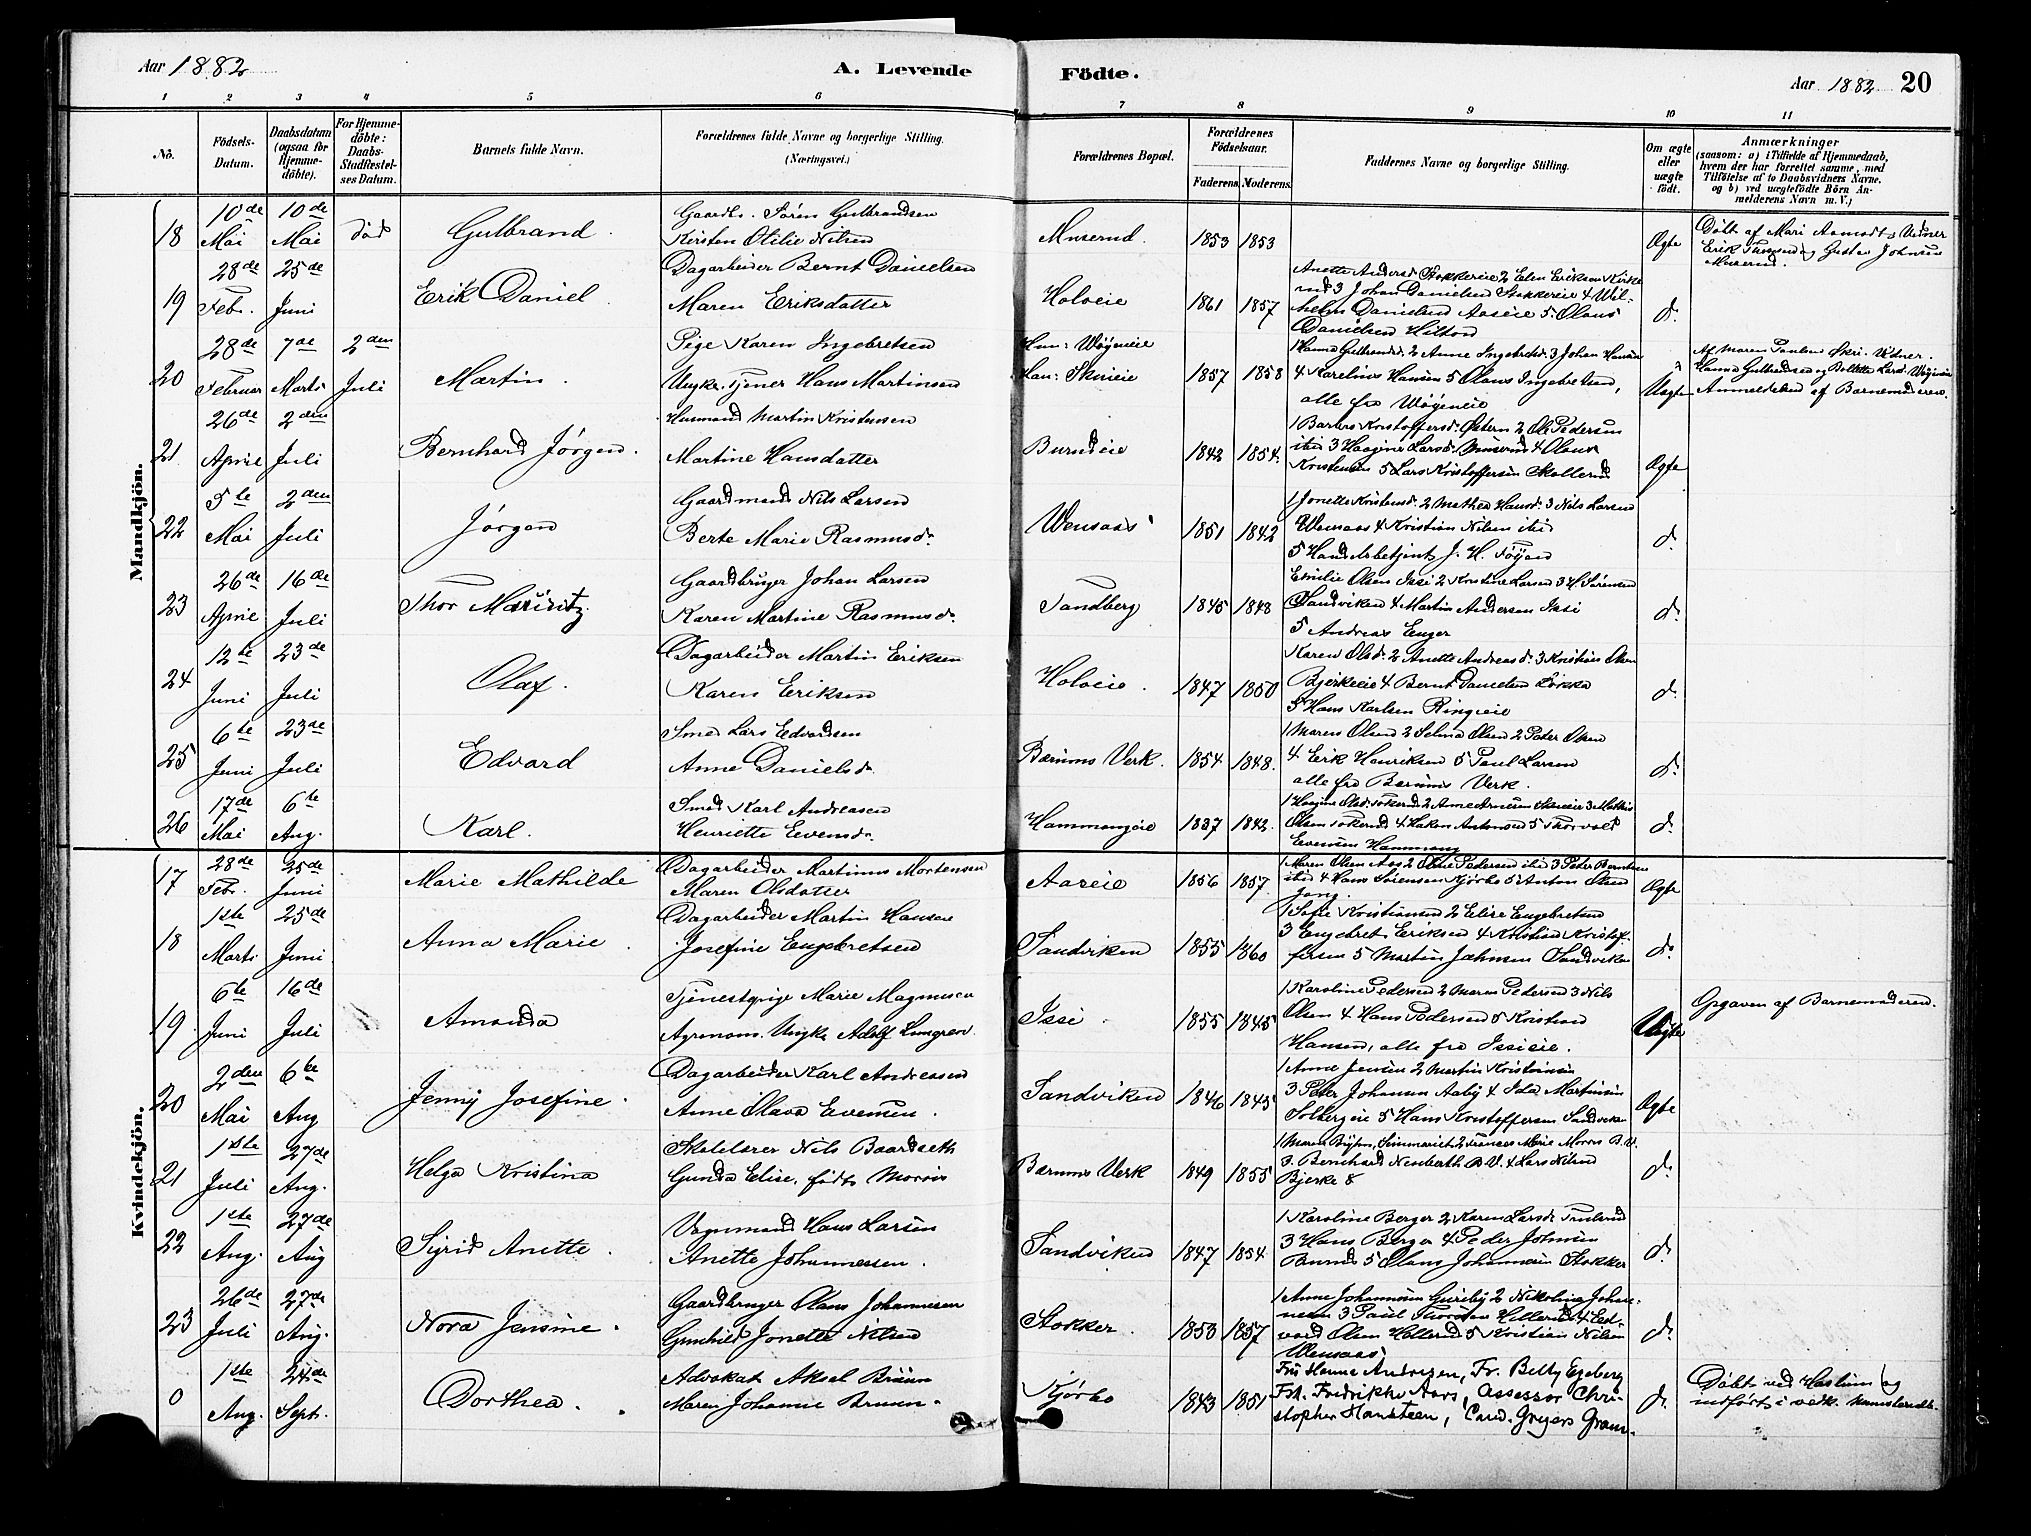 Aar 1882
A. Levende
Födte.
Aar 1882
20
1 2 3 4 5 6 7 8 9 10 11
No.
Födsels-
Datum.
Daabsdatum
(ogsaa for
Hjemme-
döbte).
For Hjemme-
döbte:
Daabs-
Stadfæstel-
ses Datum.
Barnets fulde Navn.
Forældrenes fulde Navne og borgerlige Stilling.
(Næringsvei.)
Forældrenes Bopæl.
Forældrenes
Födselsaar.
Faderens. Moderens.
Faddernes Navne og borgerlige Stilling.
Om ægte
eller
uægte
födt.
Anmærkninger
(saasom: a) i Tilfælde af Hjemmedaab,
hvem der har forrettet samme, med
Tilföielse af to Daabsvidners Navne,
og b) ved uægtefödte Börn An-
melderens Navn m. V.)
Mandkjön.
18
10de
Mai
10de
Mai
død
Gulbrand.
Gaardbr. Søren Gulbrandsen
Kirsten Otilie Nilsen
Muserud.
1853 1853
Ægte
Døbt af Mari Aamodt, Vidner
19
28de
Febr.
25de
Juni
Erik Daniel.
Dagarbeider Bernt Danielsen
Maren Eriksdatter
Holveie
1861 1857
Anette Andersd Stokkereie 2 Elen Eriksen Kirke
rud 3 Johan Danielsen Stokkereie 4 Wil-
helm Danielsen Aaseie 5 Olaus
Danielsen Hilton
d.
20
28de
Februar
7de
Marts
2den
Juli
Martin.
Pige Karen Ingebretsen
Ungkr. Tjener Hans Martinsen
Hun: Wøyeneie
Han: Skuieie
1857 1858
1 Hanna Gulbrands 2 Anne Ingebretsd. 3 Johan Hansen
4 Karelius Hansen 5 Olaus Ingebretsen,
alle fra Wøyeneie
Uægte
Af Maren Paulsen Skui. Vidner.
Anmeldelsen af Barnemoderen.
21
26de
April
2den
Juli
Bernhard Jørgen.
Husmand Martin Kristensen
Martine Hansdatter
Burudeie
1842 1854.
1 Barbra Kristoffersd. Østern 2 Ole Pedersen
itid 3 Haagine Larsd. Muserud 4 Olaus
Kristensen 5 Lars Kristoffersen Skollerud
Ægte
22
5te
Mai
2den
Juli
Jørgen
Gaardmand Nils Larsen
Berte Marie Rasmusd.
Wensaas
1851 1842
1 Jonette Kristensd. 2 Mathea Hansd. 3 Nils Larsen
Wensaas 4 Kristian Nilsen itid
5 Handelsbetjent J. H. Føyen
d.
23
26de
April
16de
Juli
Thor Mauritz.
Gaardbruger Johan Larsen
Karen Martine Rasmusd.
Tandberg
1845 1848
Emilie Olsen Issi 2 Kristine Larsen 3 H. Sørensen
Sandviken 4 Martin Andersen Issi
5 Andreas Enger
d.
24
12te
Juni
23de
Juli
Olaf.
Dagarbeider Martin Eriksen
Karen Eriksen
Holveie.
1847 1850
Karen Olsd. 2 Anette Andreasd. 3 Kristian Olsen
Bjerkeeie 4 Bernt Danielsen Løkka
5 Hans Karlsen Ringieie
d.
25
6te
Juni
23de
Juli
Edvard
Smed Lars Edvardsen
Anne Danielsd.
Bærums Verk.
1854 1848.
1 Maren Olsen 2 Selma Olsen 2 Peter Olsen
4 Erik Henriksen 5 Paul Larsen
alle fra Bærums Verk.
d.
26
17de
Mai
6te
Aug.
Karl.
Smed Karl Andreasen
Henriette Evensd.
Hammangeie
1837 1842.
Olsen Tokerud 4 Hakon Antonsen 5 Thorvald
Evensen Hammang
d.
Kvindekjön.
17
28de
Febr.
25de
Juni
Marie Mathilde
Dagarbeider Martinus Mortensen
Maren Olsdatter
Aaseie
1856 1857.
1 Maren Olsen Aas 2 Oline Pedersen itid 3 Peter Berntsen
itid 4 Hans Sørensen Kjørbo 5 Anton Olsen
Jong.
Ægte
18
1ste
Marts
25de
Juni
Anna Marie.
Dagarbeider Martin Hansen
Josefine Engebretsen
Sandviken
1855 1860
1 Sofie Kristiansen 2 Elise Engebretsen
3 Engebret Eriksen 4 Kristian Kristof-
fersen 5 Martin Jahnsen Sandviken
d.
19
6te
Juni
16de
Juli
Amanda
Tjenestpige Marie Magnusen
Agronom. Ungk. Adolf Lungren
Issi.
1855 1845
1 Karoline Pedersen 2 Maren Pedersen 3 Nils
Olsen 4 Hans Pedersen 5 Kristian
Hansen, alle fra Issieie.
Uægte
Opgaven af Barnemoderen.
20
2den
Mai
6te
Aug
Jenny Josefine.
Dagarbeider Karl Andreasen
Anne Olava Evensen.
Sandviken
1846 1845
1 Anne Jensen 2 Martin Kristiansen
3 Peter Johansen Aaby 4 Ida Martinsen
Solbergeie 5 Hans Kristoffersen Sandviken
Ægte
21
1ste
Juli
27de
Aug.
Helga Kristina
Skolelærer Nils Baardseth
Gunda Elise, født Morris
Bærums Verk
1849 1855
3. Bernhard Neuberth B.V. 4 Lars Nilsen
Bjerke 8
d.
22
1ste
Aug.
27de
Aug
Sigrid Anette.
Vognmand Hans Larsen
Anette Johannessen.
Sandviken
1847 1854.
3 Hans Berger 4 Peder Johnsen
Burud 5 Olaus Johannesen Stokker
d.
23
26de
Juli
27de
Aug.
Nora Jensine.
Gaardbruger Olaus Johannesen
Gunhild Jonette Nilsen
Stokker.
1853 1857
1 Anne Johannesen Gurieby 2 Nikoline Johan-
nesen 3 Paul Thoresen Hillerud 4 Ed-
vard Olsen Hillerud 5 Kristian Nilsen
Wensaas
d.
0
1ste
Aug.
24de
Sept.
Dorthea.
Advokat Aksel Bruun
Maren Johanne Bruun.
Kjørbo
1843 1851
Fru Hanne Andresen, Fr. Betty Egeberg
Frk. Fredrikke Aars, Assessor Chri-
stopher Hansteen, Cand. Gregers Gram.
d.
Døbt ved Haslum og
indført i vedk. Ministerialb.